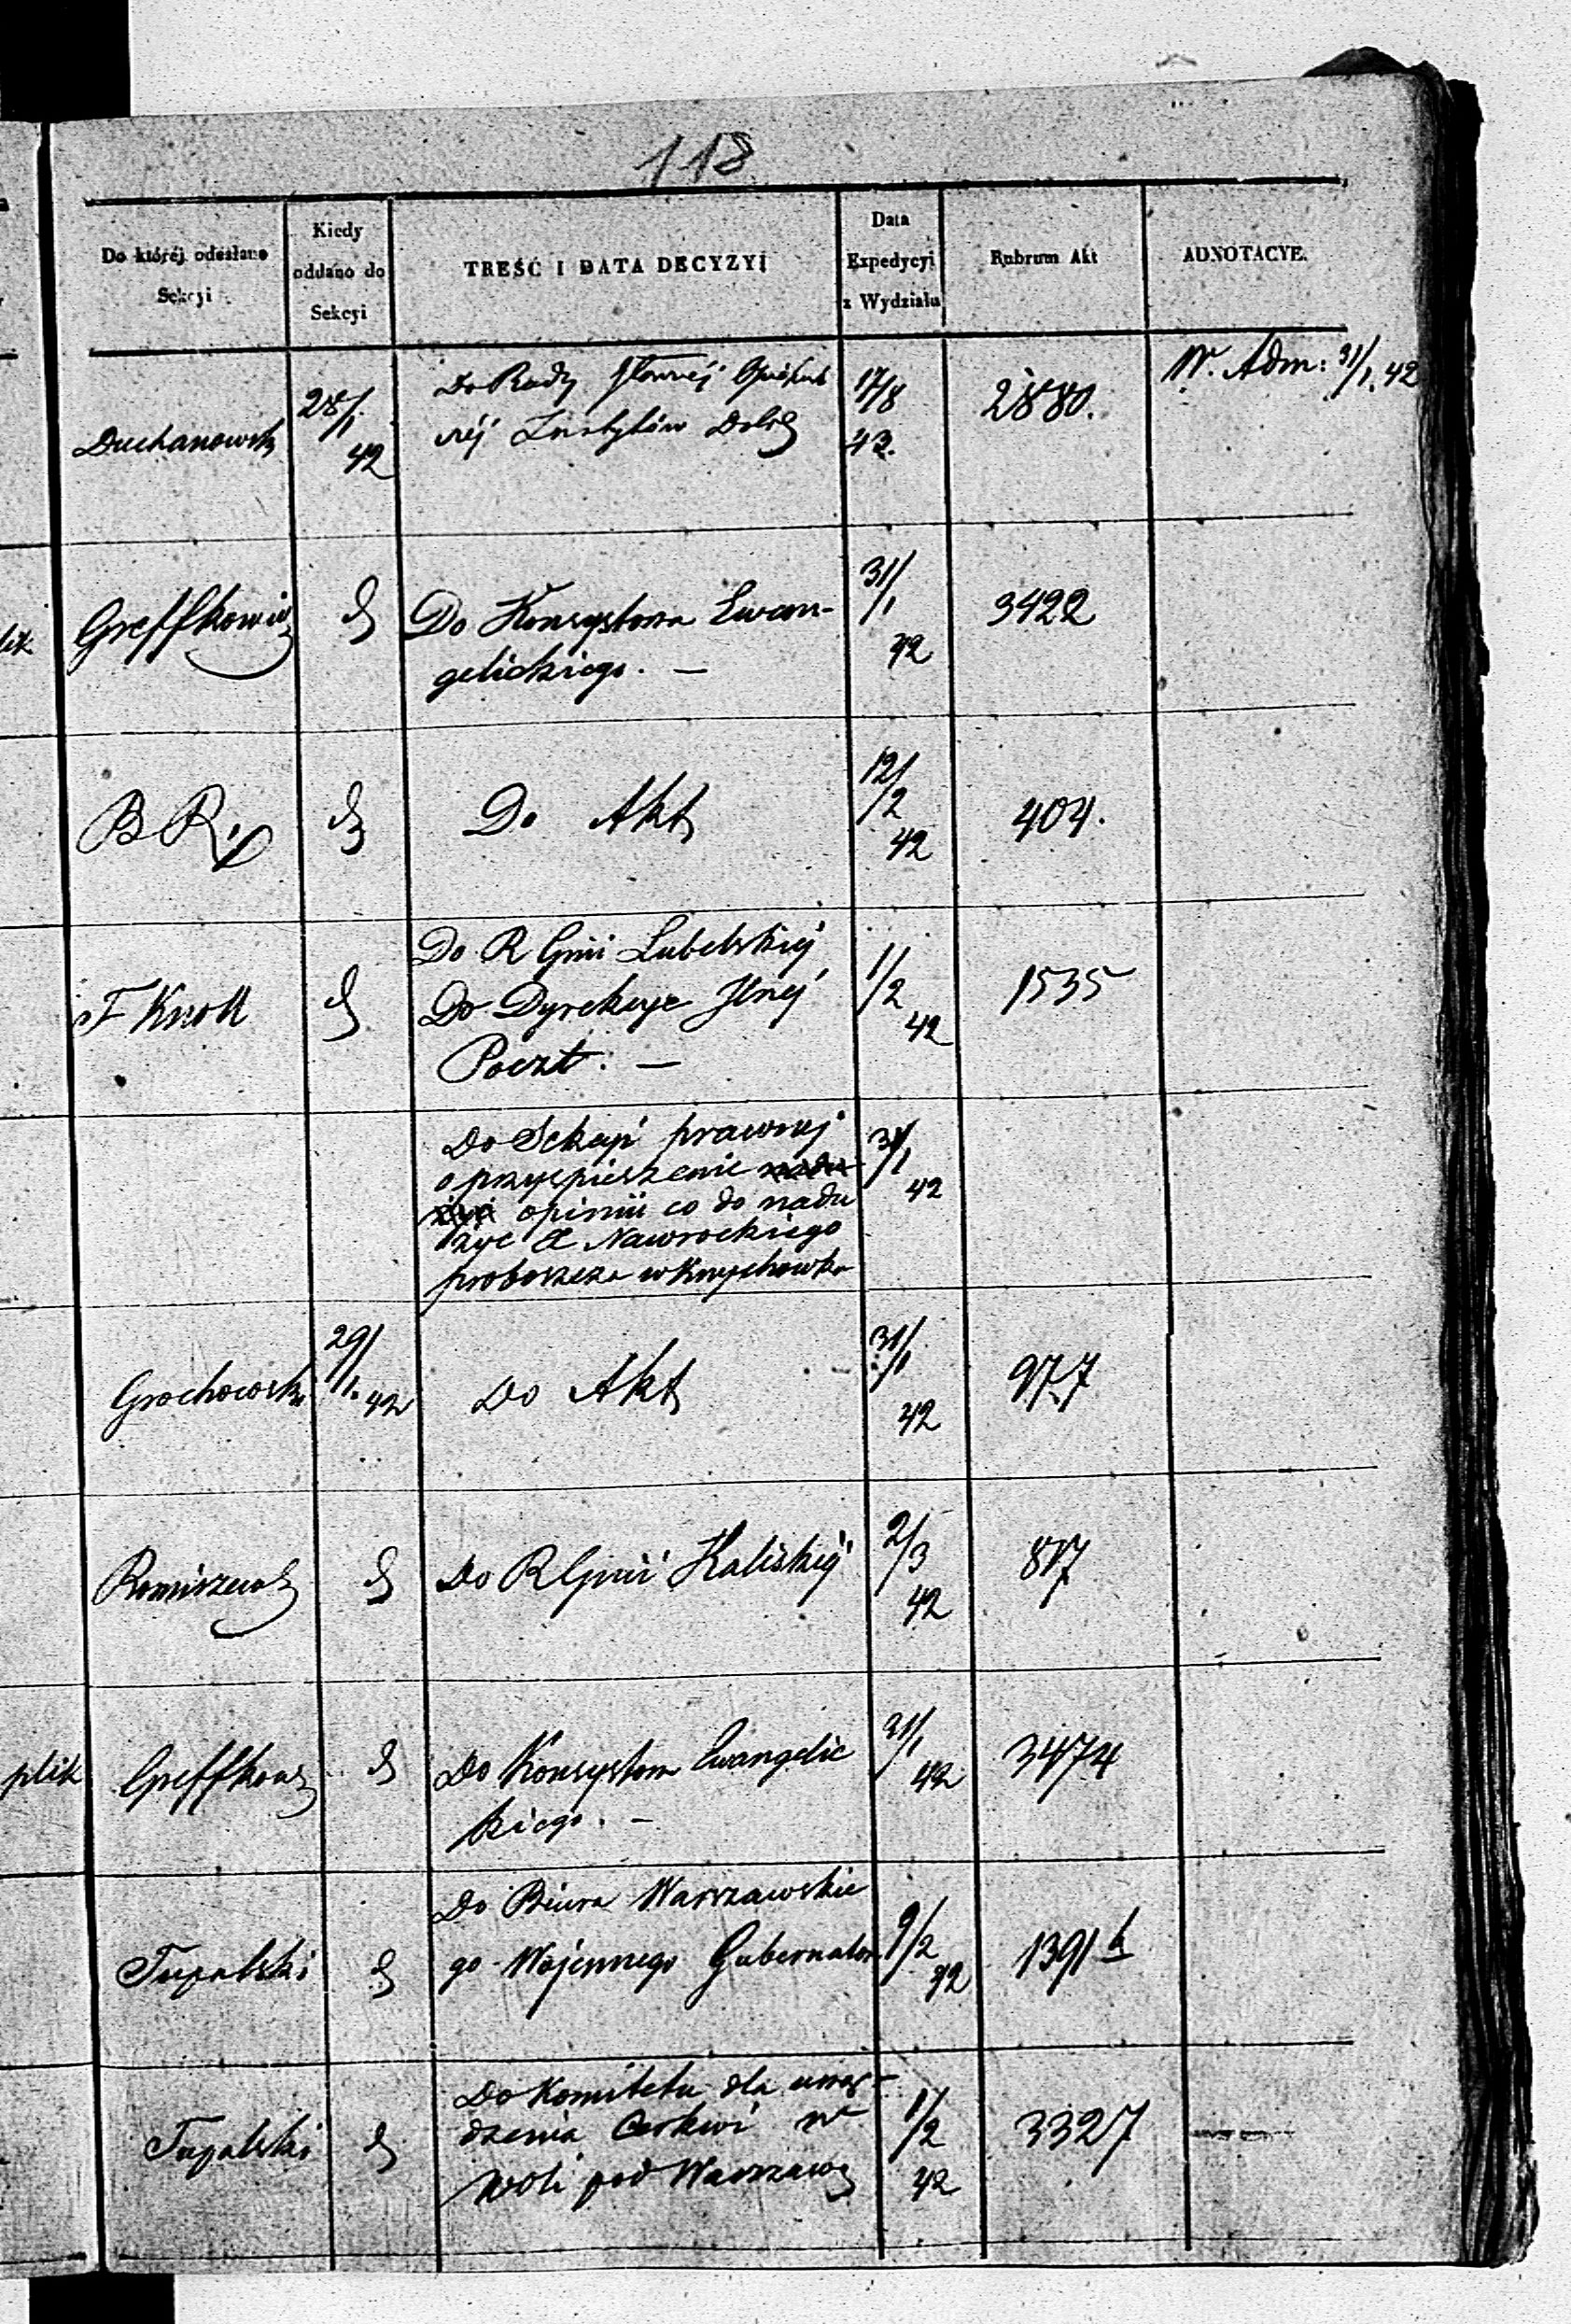 118
Do któréj odesłano
Sekcyi
Kiedy
oddano do
Sekcyi
TREŚĆ I DATA DECYZYI
Data
Expedycyi
z Wydziału
Rubrum Akt
ADNOTACYE.
Duchanowsk
28/1
42
Do Rady Głównéj Opiekuń
néj Instytutów Dobr
17/8
43.
2880.
W. Adm: 31/1. 42
lik
Greffkowicz
d
Do Konsystorza Ewan-
gelickiego. —
31/1
42
3422
B R
d
Do Akt
12/2
42
404.
F Knoll
d
Do R Gnii Lubelskiéj
Do Dyrekcyi Jlnéj
Poczt. —
1/2
42
1535
Do Sekcyi prawnej
o przyspieszenie nadu
żyć opinii co do nadu
żyć X Nawrockiego
proboszcza w Knychówku
31/1
42
Grochowski
29/1.
42
Do Akt
31/1
42
977
Romiszews
d
Do R Gnii Kaliskiéj
2/3
42
817
plik
Greffkows
d
Do Konsystorza Ewangelic
kiego. —
31/1
42
3474
Tupalski
d
Do Biura Warszawskie
go Wojennego Gubernator
9/2
42
1391 b
Tupalski
d
Do Komitetu dla urzą-
dzenia Cerkwi w
Woli pod Warszawą
1/2
42
3327